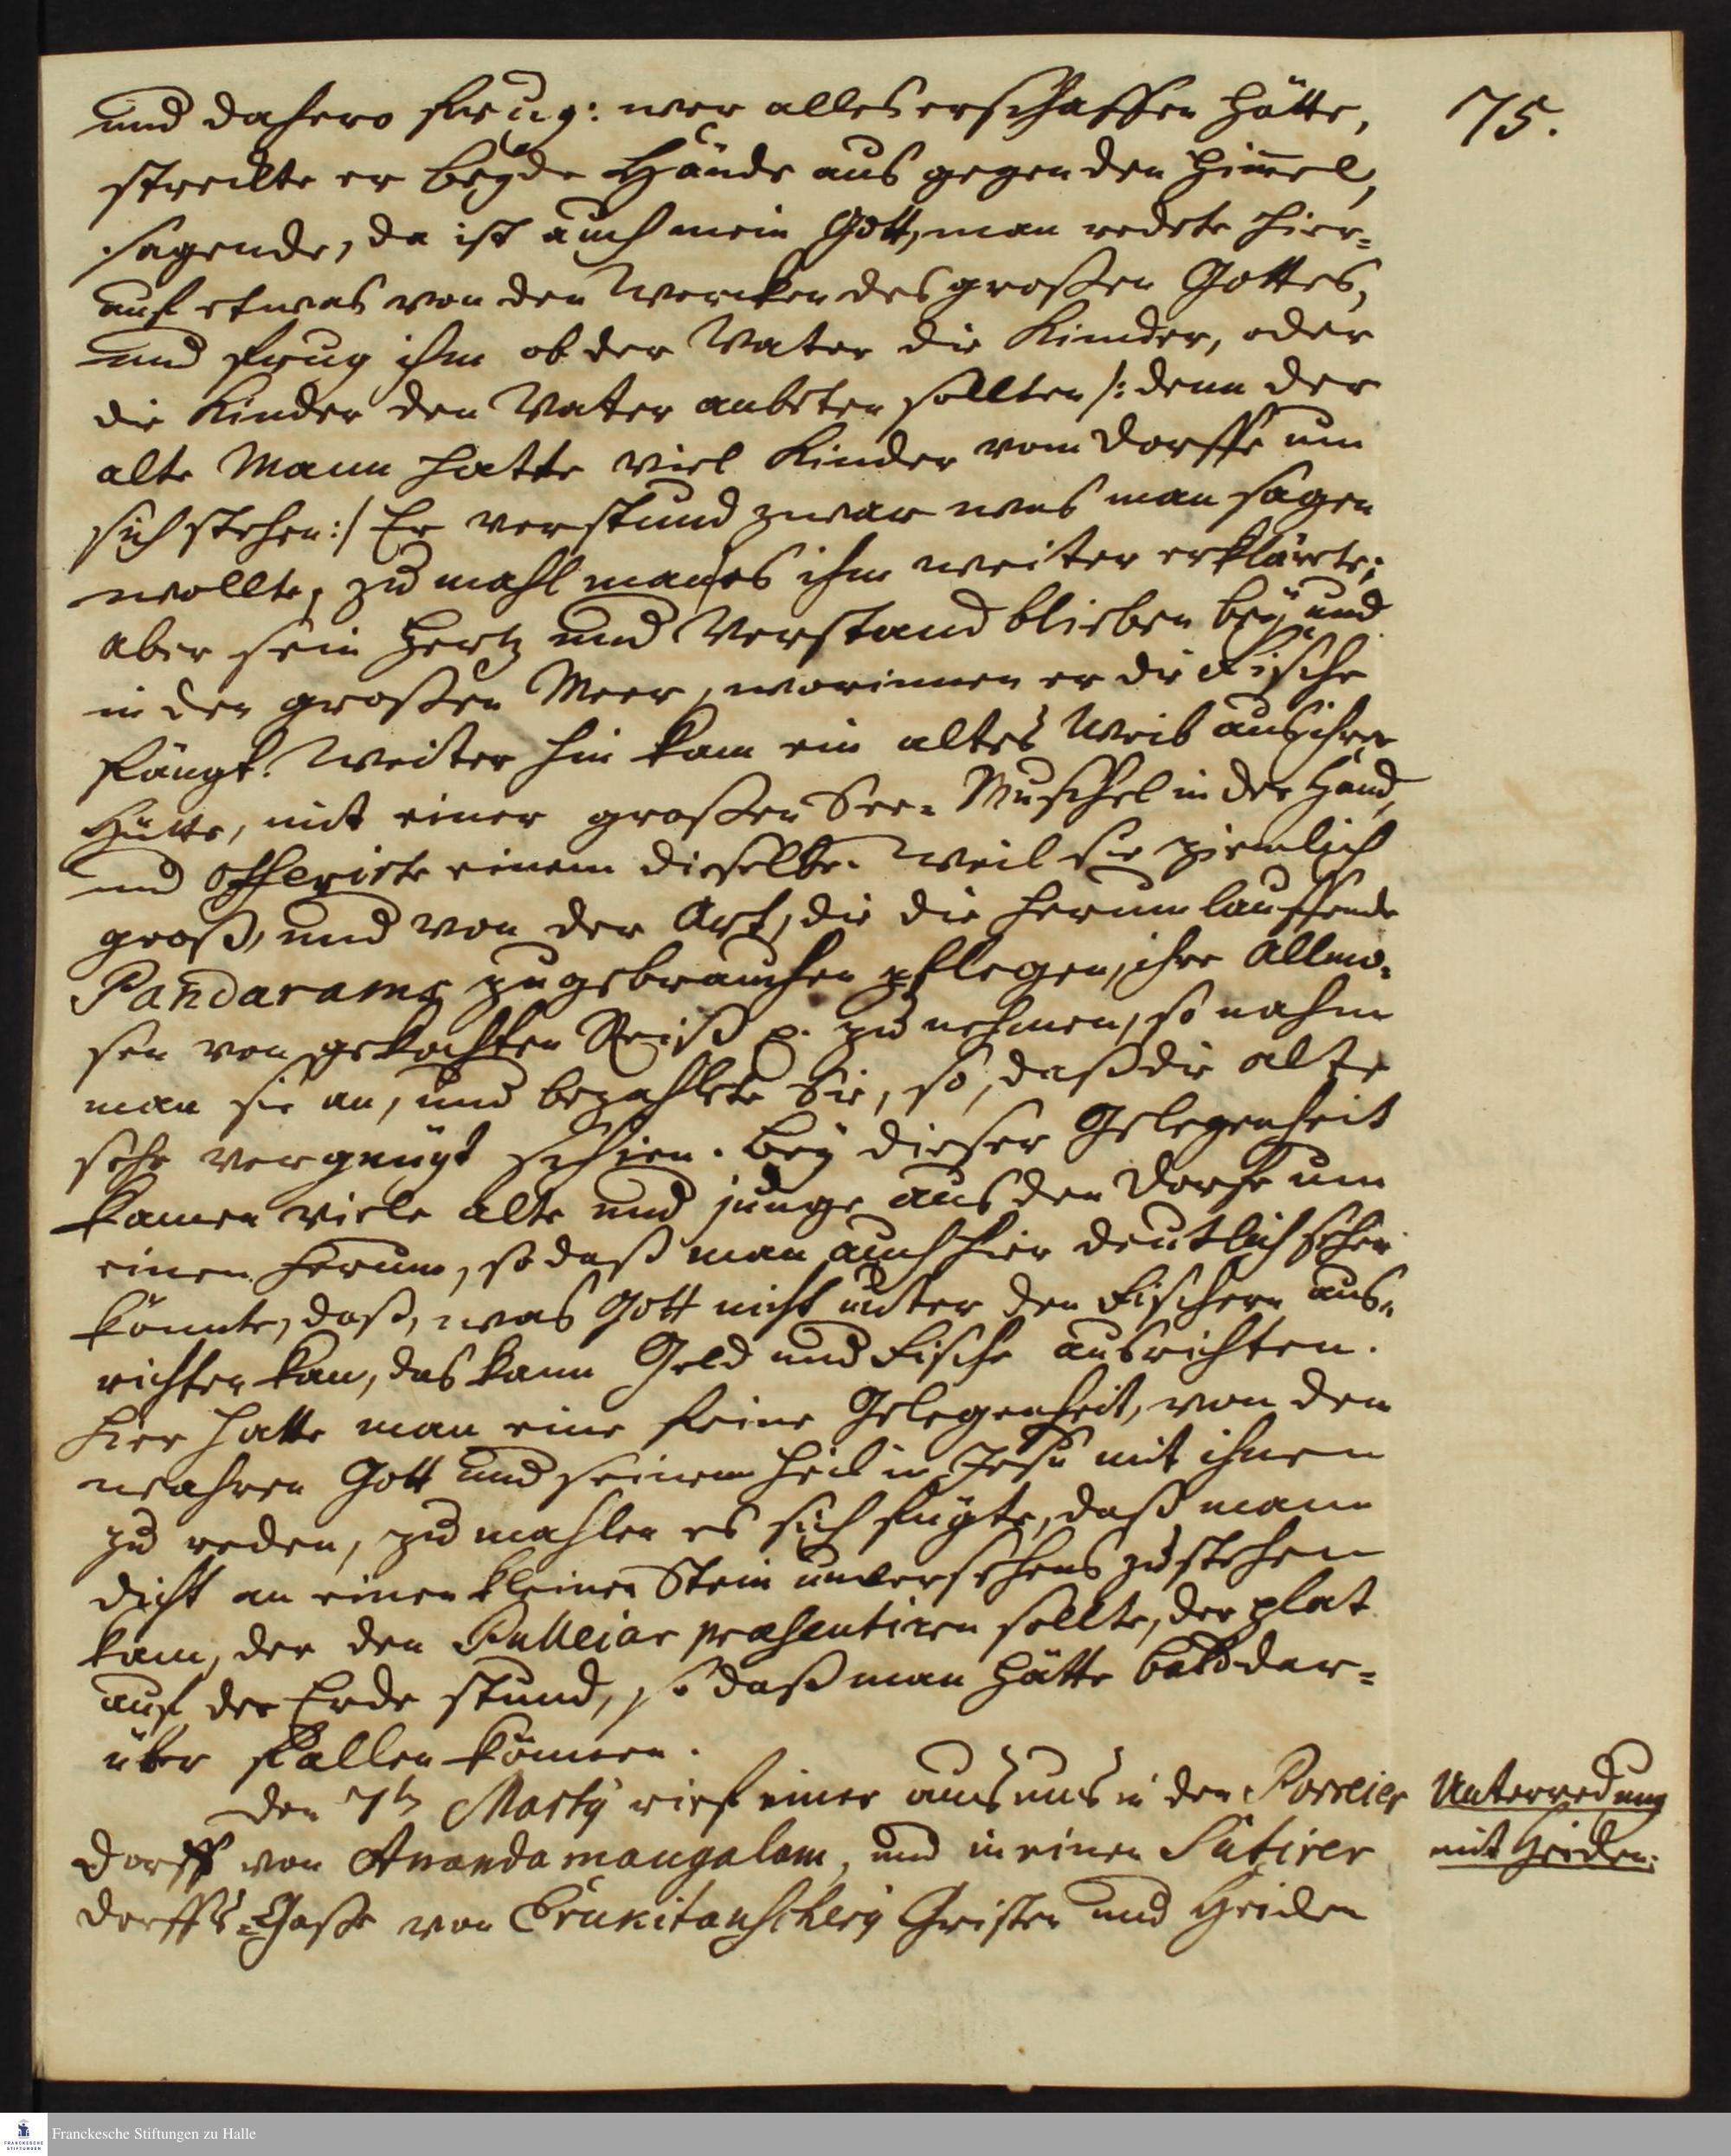 75.
und dahero frug: wer alles erschaffen hätte,
streckte er beyde Hände aus gegen den Him̄el,
sagende, da ist auch mein Gott, man redete hier=
auf etwas von den Wercken des großen Gottes,
und frug ihm ob der Vater die Kinder, oder
die Kinder den Vater anbeten sollten /: denn der
alte Mann hatte viel Kinder vom Dorffe um
sich stehen :/ Er verstund zwar was man sagen
wollte, zu mahl man es ihm weiter erklärete;
aber sein Hertz und Verstand blieben bey und
in den großen Meer, worinnen er die Fische
fängt. Weiter hin kam ein altes Weib aus ihrer
Hütte, mit einer großen See= Muschel in der Hand,
und offerirte einem dieselbe. Weil sie ziemlich
groß, und von der Art, die die herum lauffende
Pandarams zu gebrauchen pflegen, ihre Allmo=
sen von gekochten Reiß p. zu nehmen, so nahm
man sie an, und bezahlete Sie, so, daß die alte
sehr vergnügt schien. Bey dieser Gelegenheit
kamen viele alte und junge aus den Dorfe um
einen herum, so daß man auch hier deutlich sehen
könnte, daß, was Gott nicht unter den Fischern aus=
richten kan, das kann Geld und Fische ausrichten.
Hier hatte man eine feine Gelegenheit, von dem
wahren Gott und seinem Heil in Jesu mit ihnen
zu reden, zu mahlen es sich fügte, daß mann
dicht an einen kleinen Stein unversehens zu stehen
kam, der den Pulleiar præsentiren sollte, der plat
auf der Erde stund, so daß man hätte bald dar=
über fallen können.
Den 7ten Martÿ rief einer aus uns in den Porreier
Dorff von Anandamangalam, und in einen Sutirer
Dorffs=Gaße von Erukitanscheri Christen und Heiden
Unterredung
mit Heiden.
Franckesche Stiftungen zu Halle